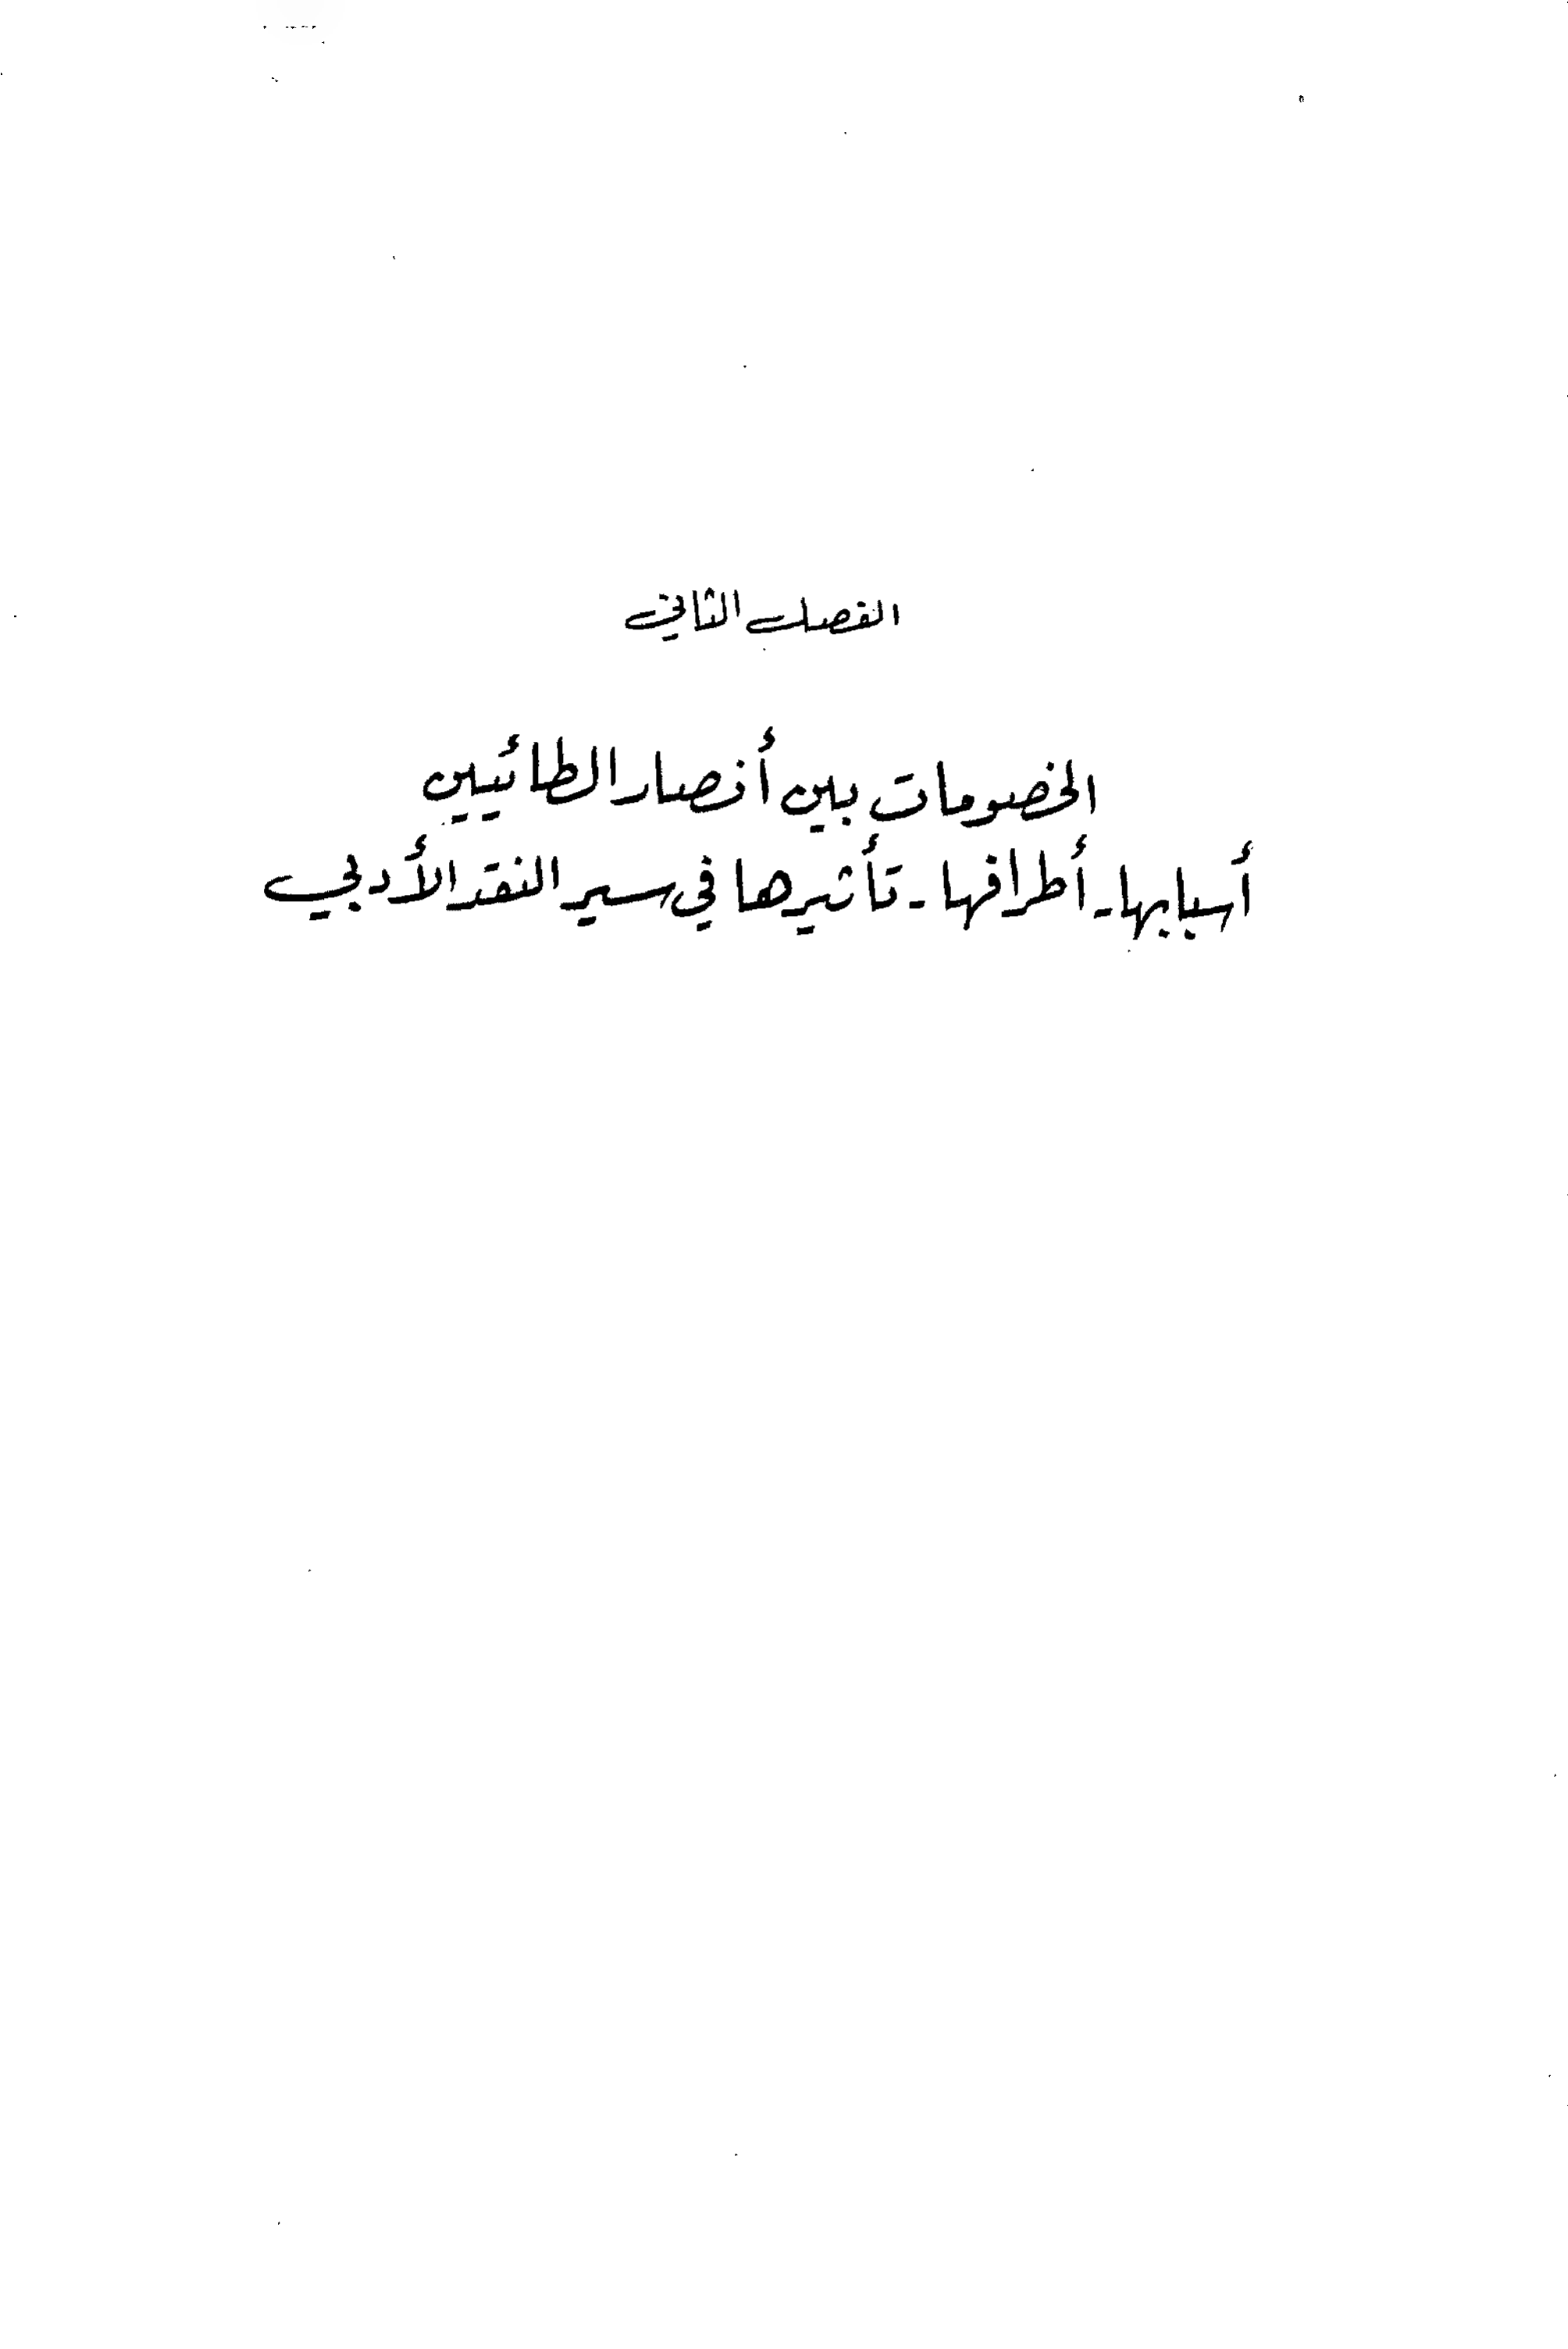 الفصل الثاني
الخصومات بين أنصار الطائيين
أسبابها - أطرافها - تأثيرها في سير النقد الأدبي